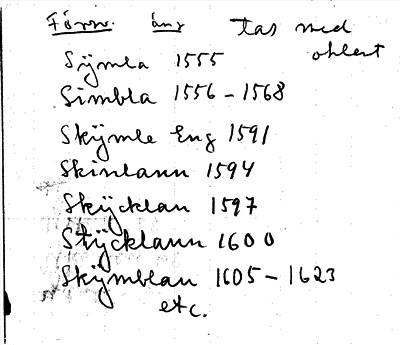 Förvv. äng tas med
ohlert
Sÿmla 1555
Simbla 1556-1568
Skÿmle Eng 1591
Skinlann 1594
Skÿcklan 1597
Stÿcklann 1600
Skÿmblan 1605-1623
etc.